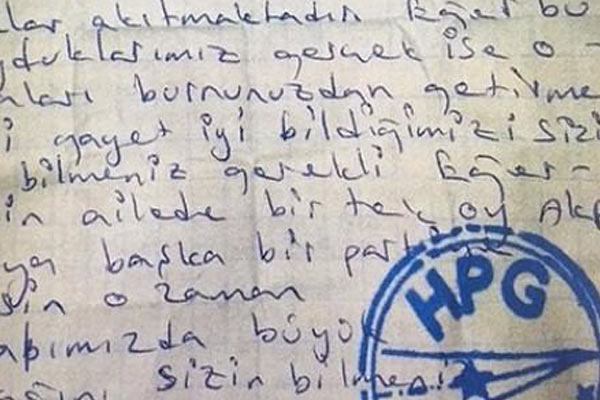 lar akıtmaktadır Eğer bu
yduklarımız gerçek ise o -
nları burnunuzdan getirme
i gayet iyi bildiğimizi sizi
bilmeniz gerekli Eğer -
in ailede bir tek oy AKP
ya başka bir parti
sin o zaman
apımızda büyük
sizin bilmeniz
HPG